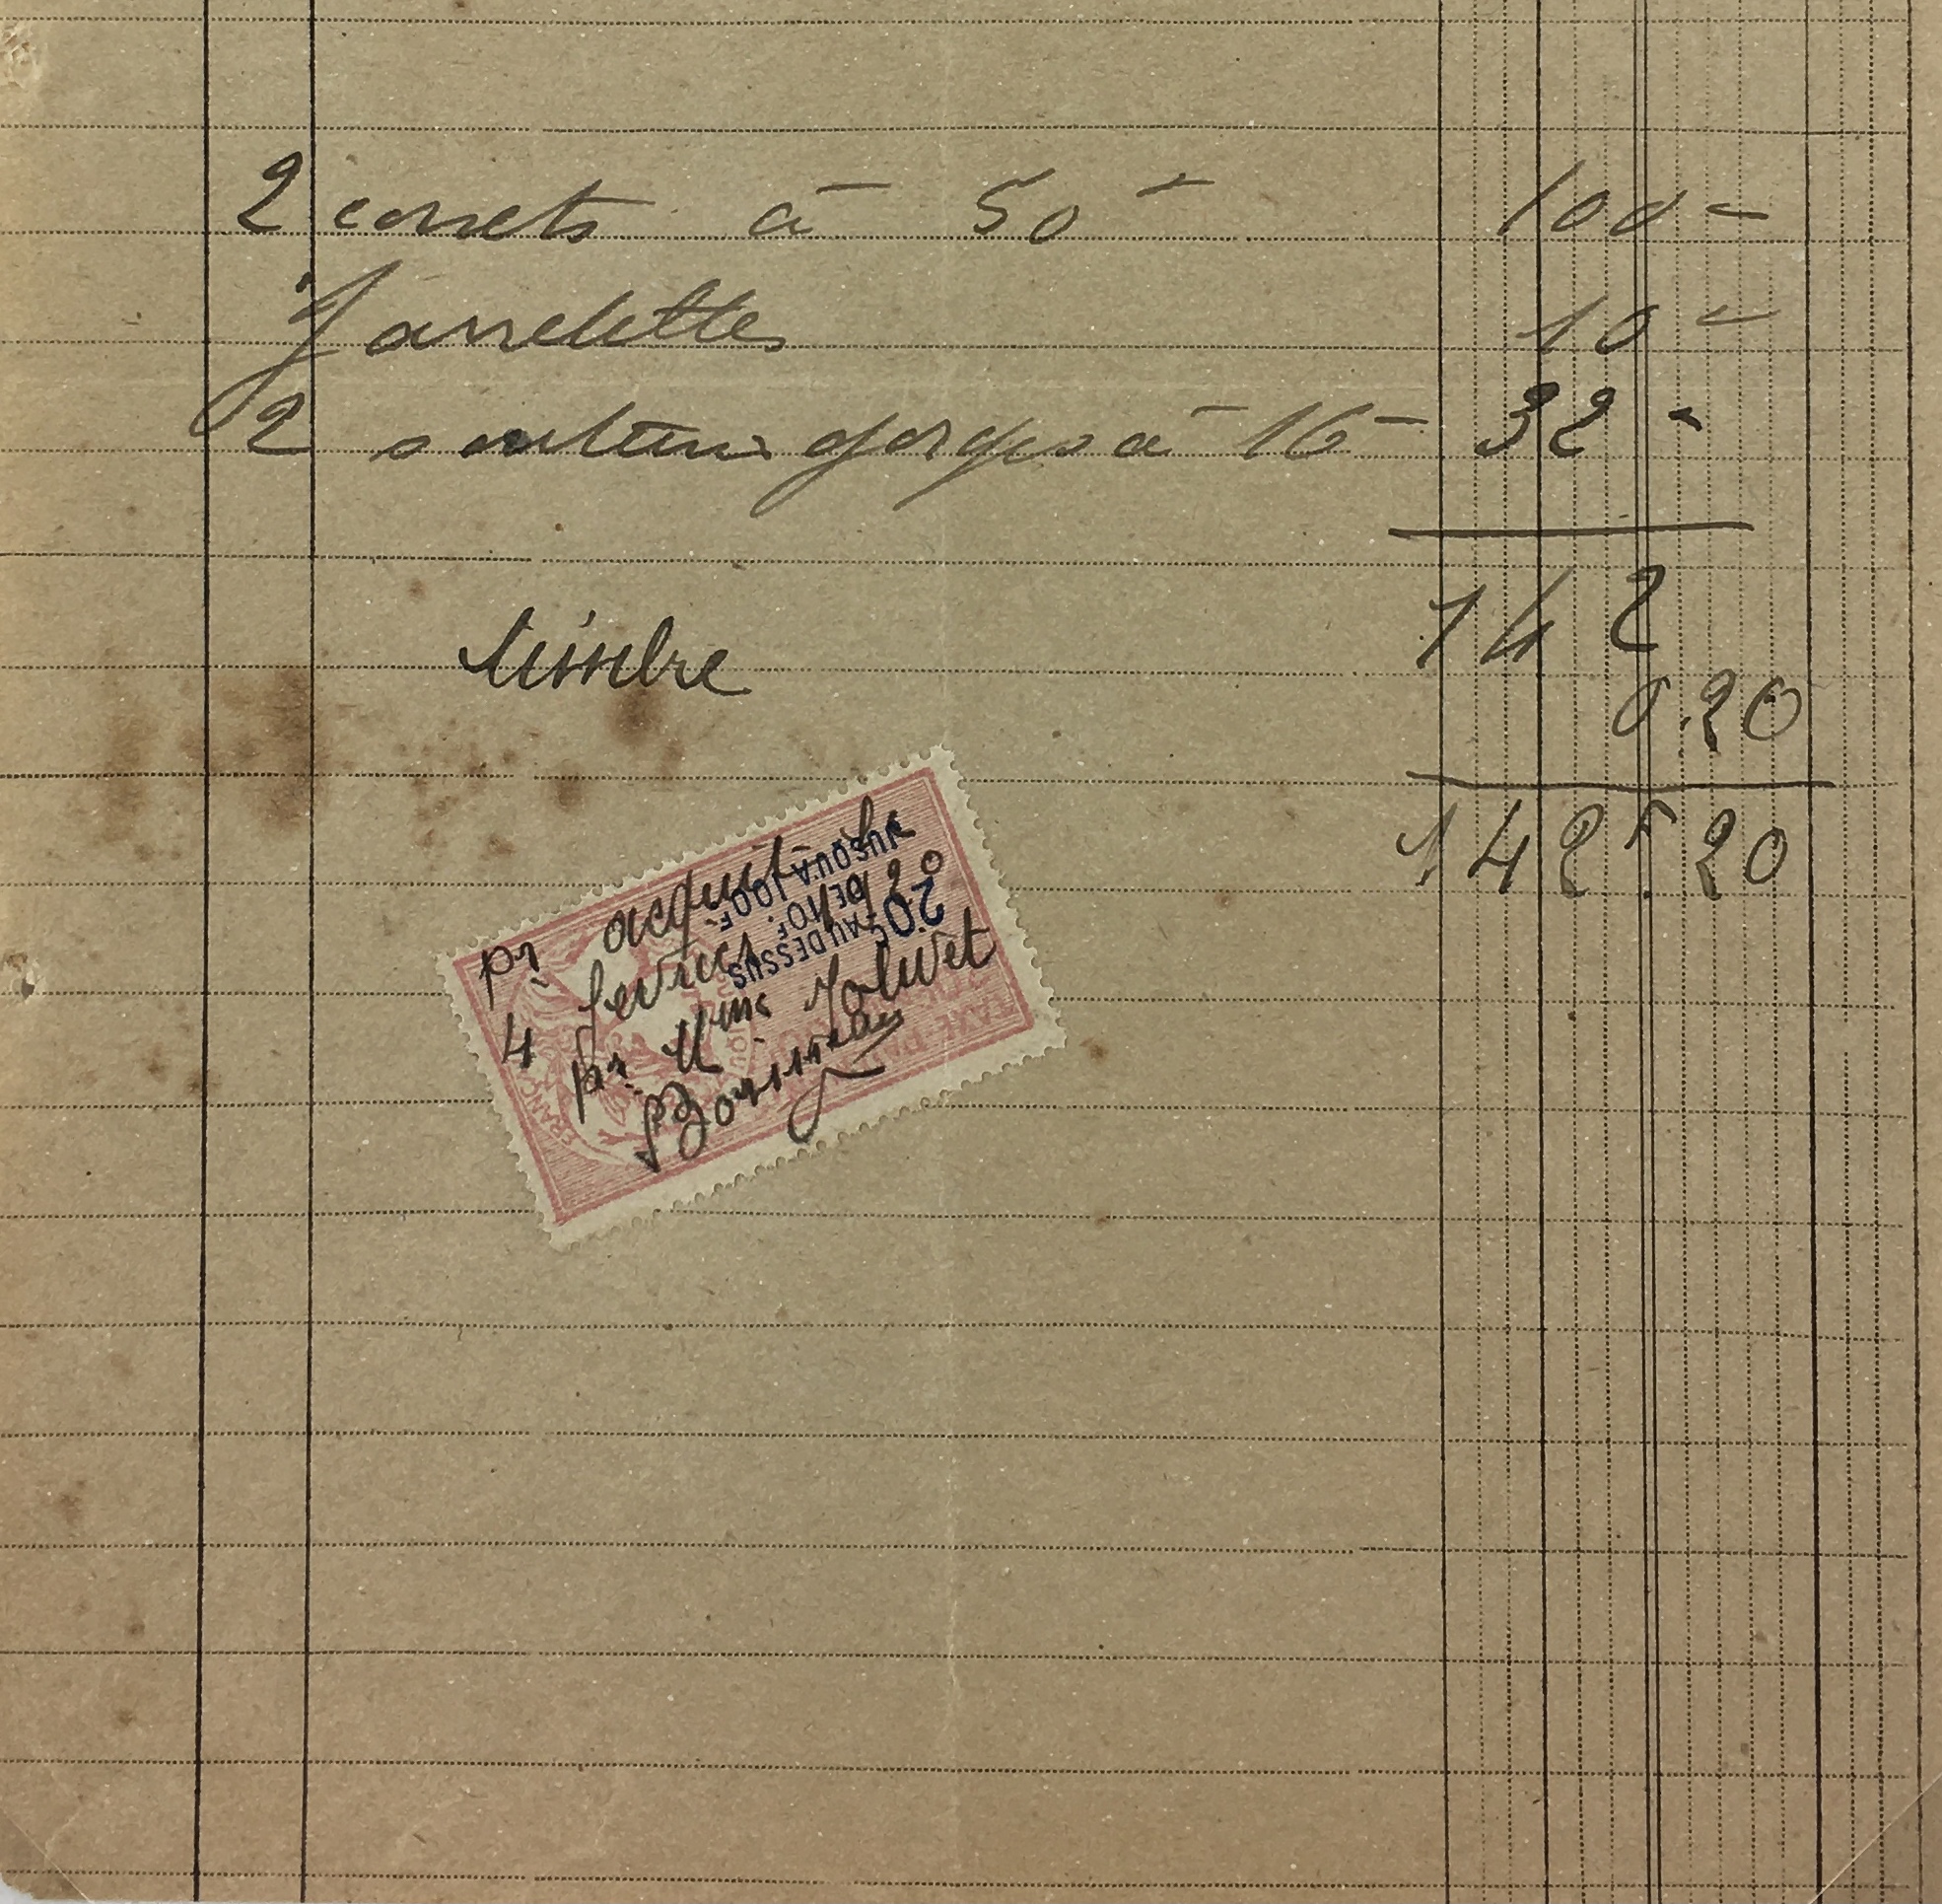 2 corsets à 50 - 100 -
Jarretelles 10 -
2 soutien gorges à 16 - 32 -
142
timbre 0.20
142f.20
pr acquit le
4 fevrier 1920
pr Mme Jolivet
20c
AU DESSUS
DE 10F.
JUSQU'A 100F.
FRANÇ
TAXE